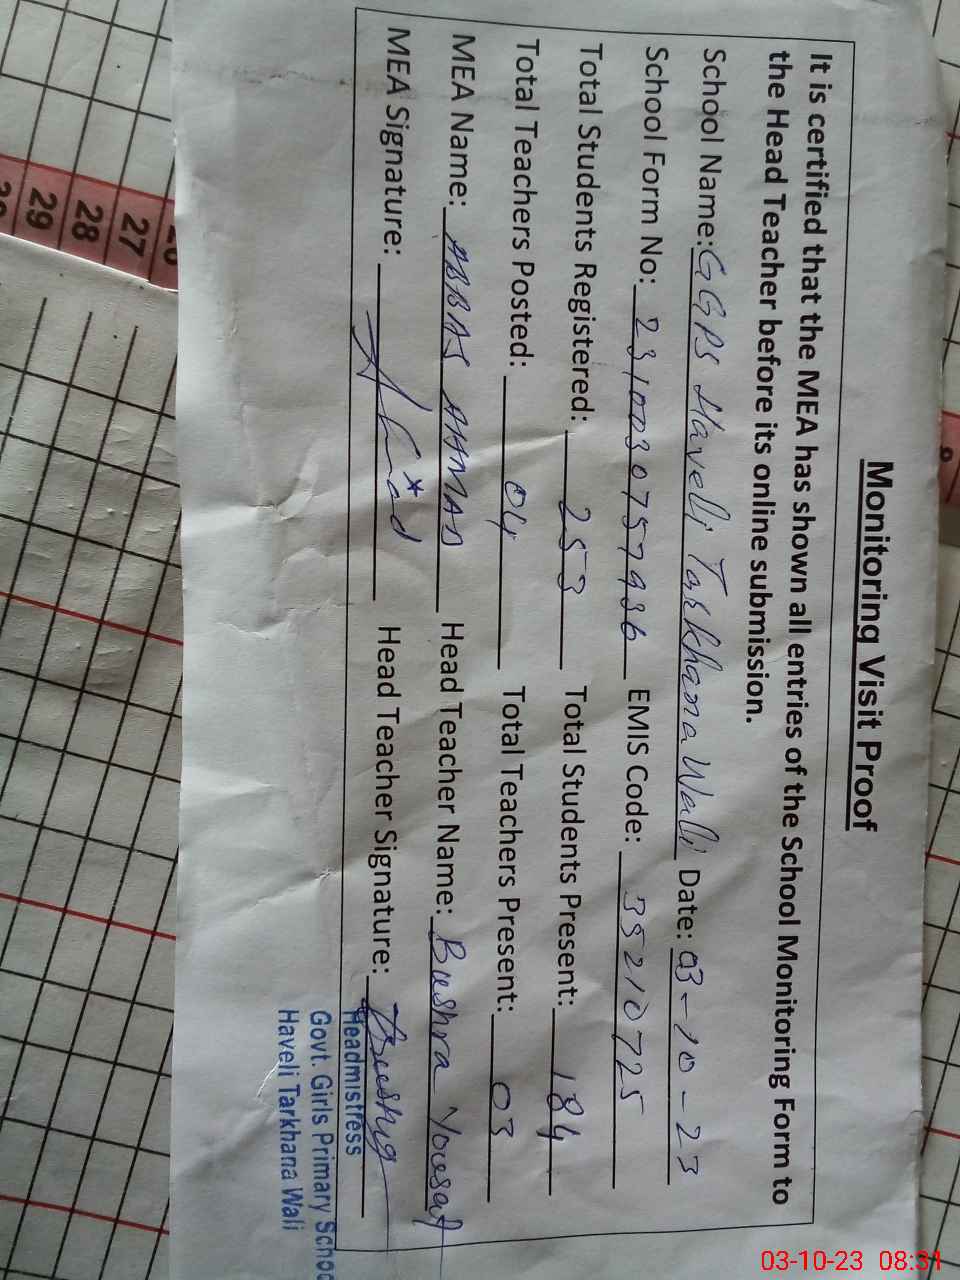 Monitoring Visit Proof
It is certified that the MEA has shown all entries of the School Monitoring Form to
the Head Teacher before its online submission.
School Name: GGPS Haveli Tarkhana Wali Date: 03-10-23
School Form No: 2310030757936 EMIS Code: 35210725
Total Students Registered: 253 Total Students Present: 184
Total Teachers Posted: 04 Total Teachers Present: 03
MEA Name: ABBAS AHMAD Head Teacher Name: Bushra Yousaf
MEA Signature: Head Teacher Signature: Bushra
Headmistress
Govt. Girls Primary Schoo
Haveli Tarkhana Wali
27
28
29
03-10-23 08:31